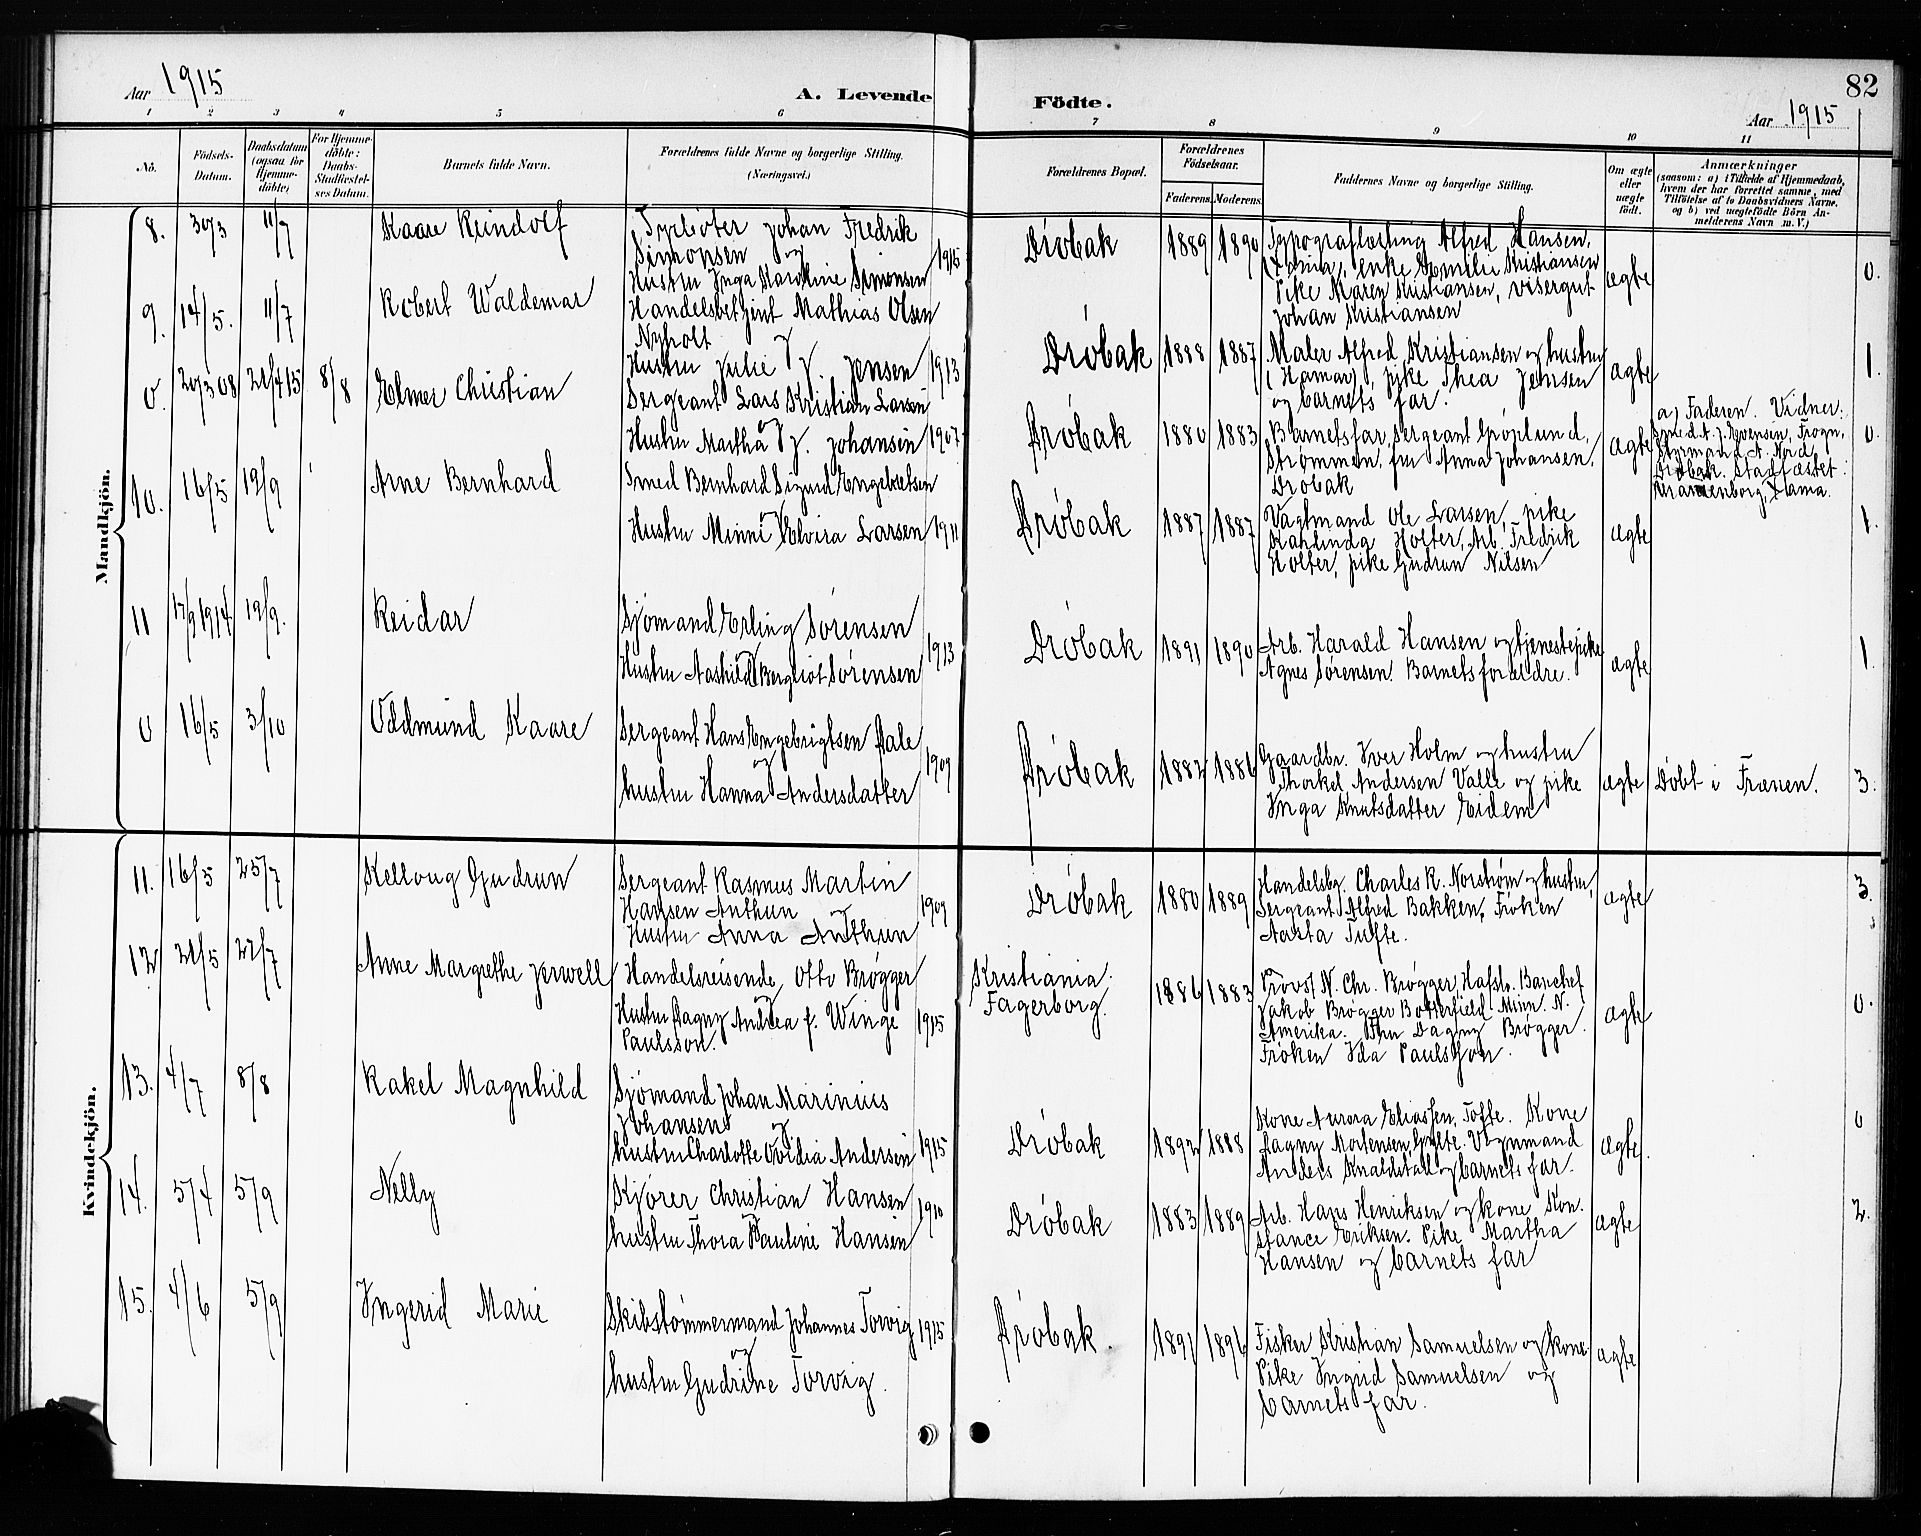 Aar 1915
A. Levende
Födte.
82
Aar 1915
1 2 3 4 5 6 7 8 9 10 11
No.
Födsels-
Datum.
Daabsdatum
(ogsaa for
Hjemme-
döbte)
For Hjemme-
döbte:
Daabs-
Stadfæstel-
ses Datum.
Barnets fulde Navn.
Forældrenes fulde Navne og borgerlige Stilling.
(Næringsvei.)
Forældrenes Bopæl.
Forældrenes
Födselsaar.
Faderens. Moderens.
Faddernes Navne og borgerlige Stilling.
Om ægte
eller
uægte
födt.
Anmærkninger
(saasom: a) i Tilfælde af Hjemmedaab,
hvem der har forrettet samme, med
Tilföielse af to Daabsvidners Navne,
og b) ved uægtefödte Börn An-
melderens Navn m. V.)
Mandkjön.
8. 30/3 11/7 Kaare Reindolf
Johan Fredrik
Simonsen og
Hustru Inga Karoline Simonsen 1915
Drøbak 1889 1890
Alfred Hansen,
enke Emilie Kristiansen
Pike Maren Kristiansen, visergut
Johan Kristiansen
ægte 0.
9. 14/5. 11/7 Robert Waldemar
Handelsbetjent Mathias Olsen
Nyholt og
Hustru Julie f. Jensen 1913
Drøbak 1888 1887
Maler Alfred Kristiansen og hustru
(Hamar), pike Thea Jensen
og barnets far.
ægte 1.
0. 20/3 08 21/4 15 8/8 Elmer Christian
Sergeant Lars Kristian Larsen
og
Hustru Martha f. Johansen 1907
Drøbak 1880 1883
Barnets far, sergeant Grøplund,
Strømmen, fru Anna Johansen,
Drøbak
ægte
a) Faderen. Vidner:
Smed A. J. Evensen, Frogn,
Styrmand A. Nord,
Drøbak. Stadfæstet:
0.
10. 16/5 19/9 Arne Bernhard
Smed Bernhard Sigurd Engebretsen
Hustru Minni Elvira Larsen 1911
Drøbak 1887 1887
Vagtmand Ole Larsen, pike
Holter, Arb. Fredrik
Holter, pike Gudrun Nilsen
ægte 1.
11 17/9 1914. 19/9. Reidar
Sjömand Erling Sörensen
og
Hustru Aashild Bergliot Sörensen 1913
Drøbak 1891 1890
Arb. Harald Hansen og tjenestepike
Agnes Sörensen. Barnets forældre.
ægte 1.
0 16/5 3/10 Oddmund Kaare
Sergeant Hans Engebrigtsen Dale
og
hustru Hanna Andersdatter 1909
Drøbak 1882 1886
Gaardbr. Iver Holm og hustru
Thorkel Andersen Valle og pike
Inga Knutsdatter Eidem
ægte Døbt i Frænen. 3.
Kvindekjön.
11. 16/5 25/7 Kellaug Gudrun
Sergeant Rasmus Martin
Hansen Anthun og
Hustru Anna Anthun 1909
Drøbak 1880 1889
Handelsbg. Charles R. Norstrøm og hustru,
Sergeant Alfred Bakken, Frøken
Aasta Tufte.
ægte 3.
12 21/5 22/7 Anne Margrethe Jerwell
Handelsreisende Otto Brøgger
og
Hustru Dagny Andrea f. Winge
Paulsson. 1915
Kristiania.
Fagerborg.
1886 1883
Provst N. Chr. Brøgger, Hafslo. Bankchef
Jakob Brøgger Botterfield Minn. N.
Amerika. Fru Dagny Brøgger.
Frøken Ida Paulsson.
ægte 0.
13. 4/7 8/8 Rakel Magnhild
Sjömand Johan Marinius
Johansen og
hustru Charlotte Ovidia Andersen 1915
Drøbak 1892 1888
Kone Aurora Eliassen, Tofte. Kone
Dagny Mortensen, Gylte.
Anders og barnets far.
ægte. 0
14. 5/4 5/9 Nelly
Kjører Christian Hansen
og
hustru Thora Pauline Hansen 1910
Drøbak 1883 1889
Arb. Hans Henriksen og kone Kon-
stance Eriksen. Pike Martha
Hansen og barnets far
ægte 2.
15. 4/6 5/9 Ingerid Marie
Skibstömmermand Johannes Torvig
og
hustru Gudrine Torvig. 1915
Drøbak. 1891 1896
Fisker Kristian Samuelsen og kone
Pike Ingrid Samuelsen og
barnets far.
ægte